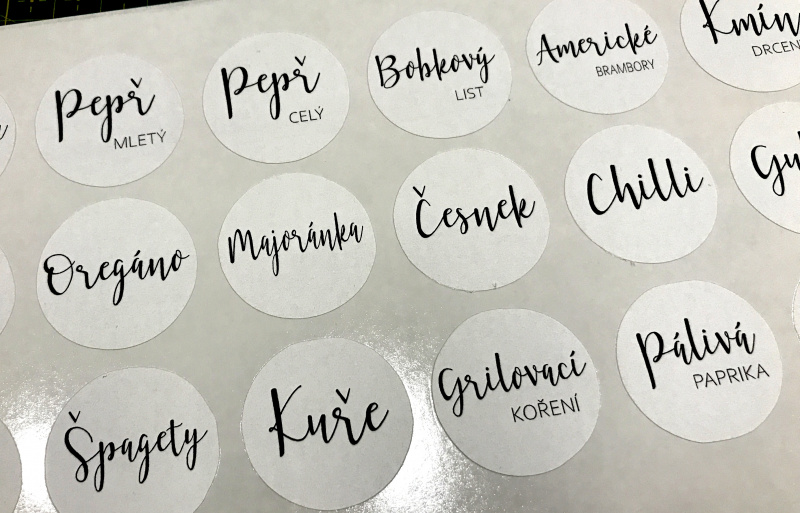 Pepř
MLETÝ
Pepř
CELÝ
Bobkový
LIST
Americké
BRAMBORY
Kmín
Oregáno
Majoránka
Česnek
Chilli
Špagety
Kuře
Grilovací
KOŘENÍ
Pálivá
PAPRIKA